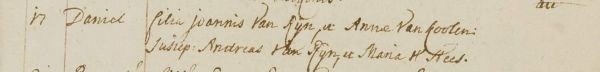 17 Daniel filius Joannis Van Rijn et Anne Van Goolen:
Suscep: Andreas Van Rijn, et Maria V Hees.